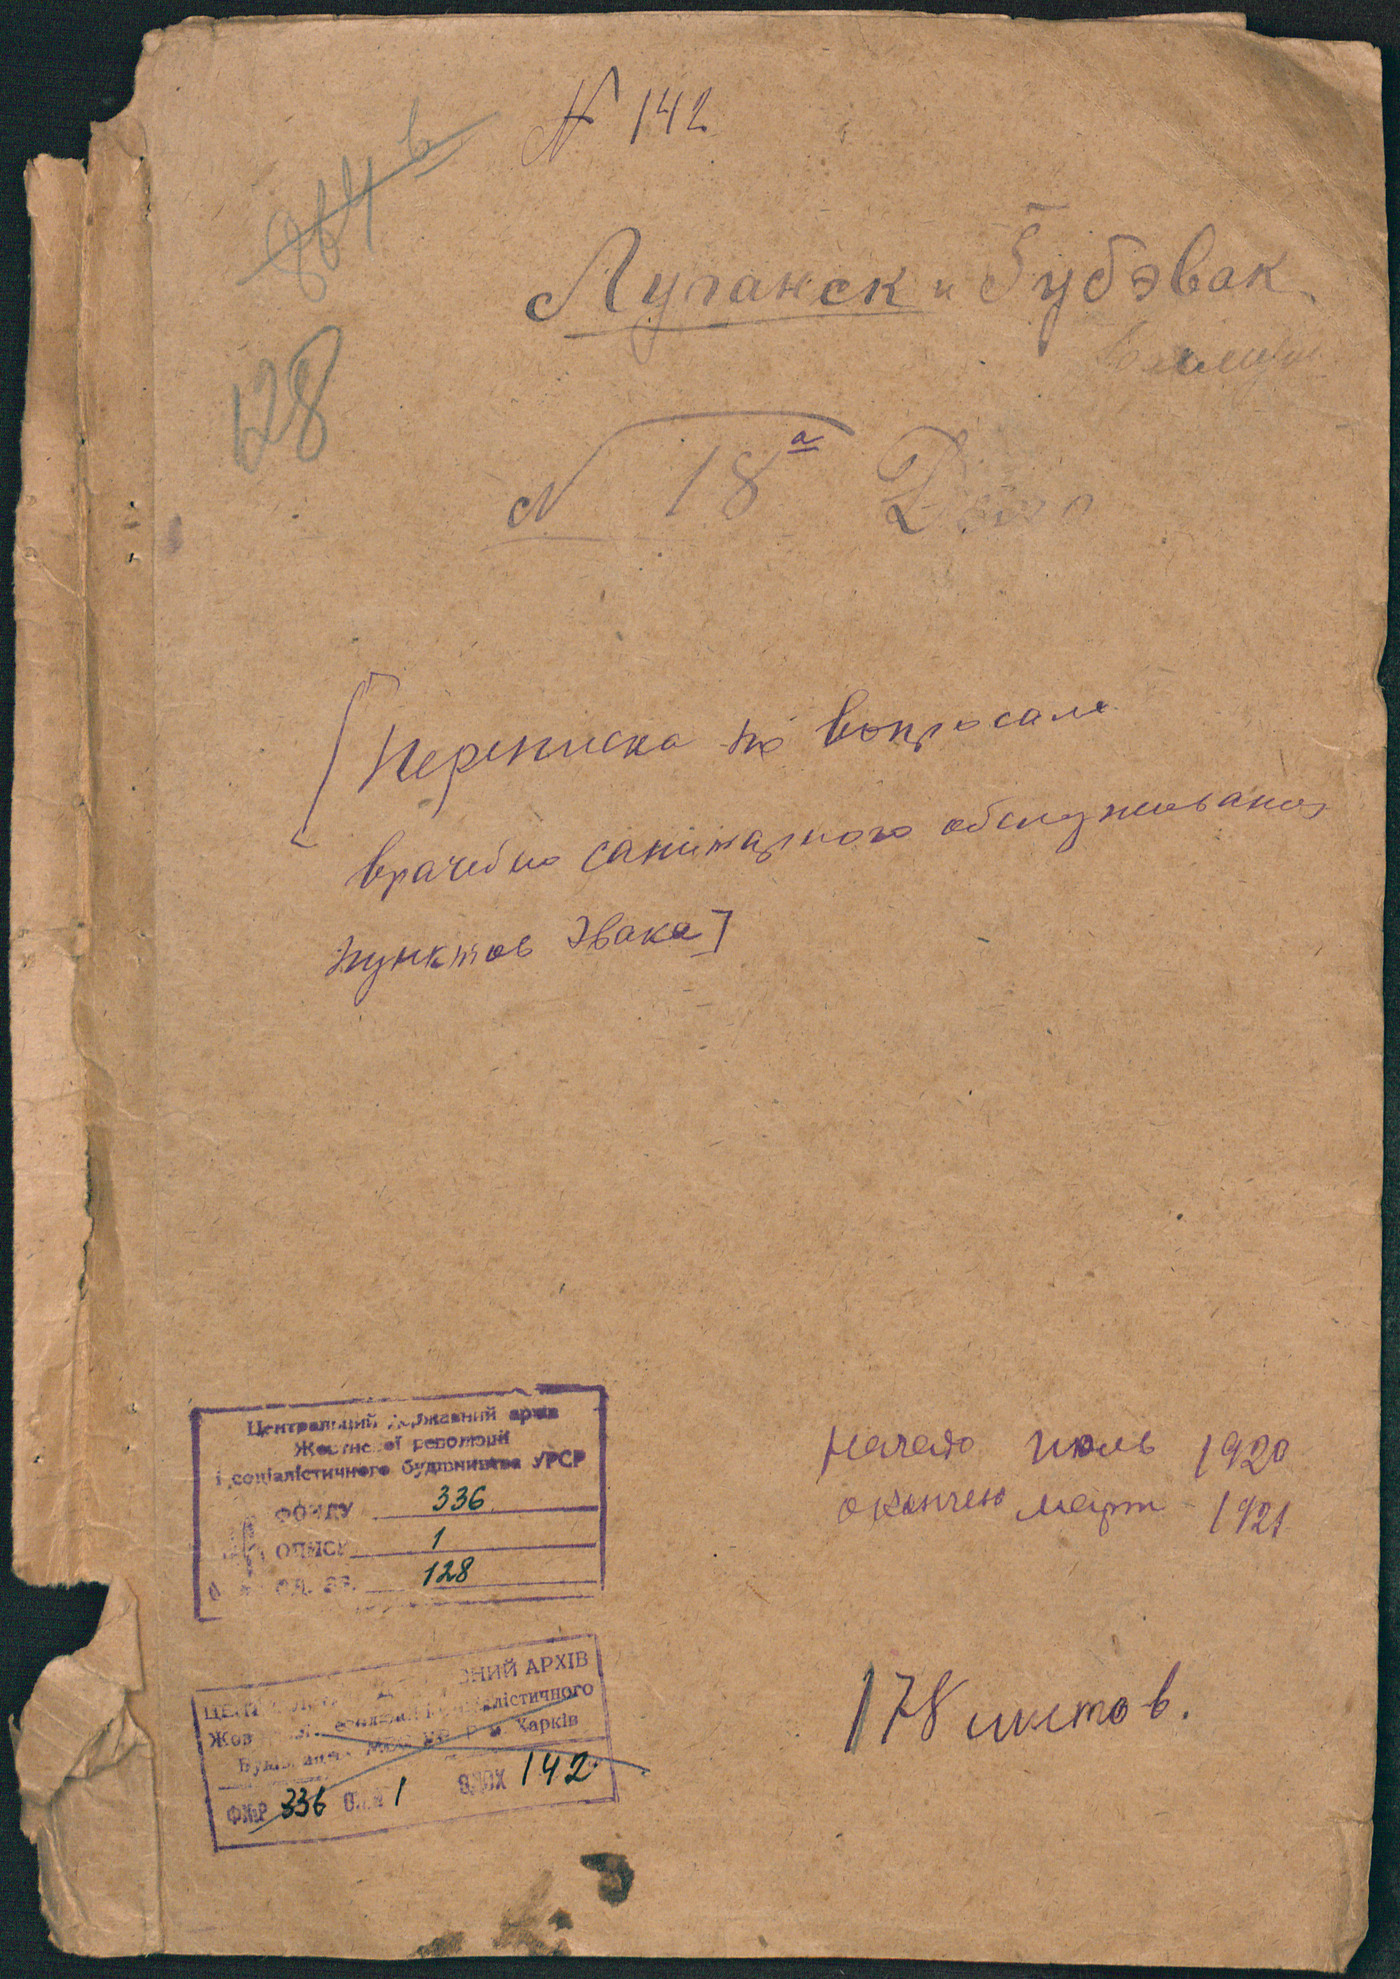 N 142
864 б
128
Луганск и Губэвак
N 18а Дело
[Переписка по вопросам
врачебно санитарного обслуживания
пунктов Эвака]
Центральний державний архів
Жовтневої революції
і соціалістичного будівництва УРСР
ФОНДУ 336
ОПИСУ 1
ОД. ЗБ. 128
Начато июль 1920
окончено март 1921
178 листов.
ЦЕНТРАЛЬНИЙ ДЕРЖАВНИЙ АРХІВ
Жовтневої революції і соціалістичного
Будівництва УРСР м. Харків
Ф№Р 336 ОП.№ 1 ОД.ЗХ 142